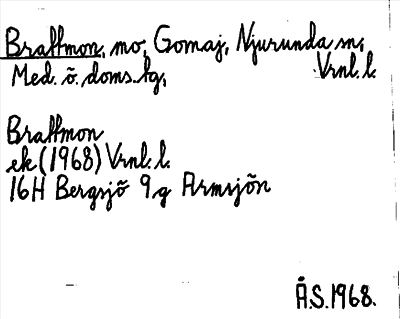 Brattmon, mo, Gomaj, Njurunda sn,
Med. ö. doms.tg, Vrnl. l.
Brattmon
ek (1968) Vrnl. l.
16H Bergsjö 9g Armsjön
Å.S.1968.